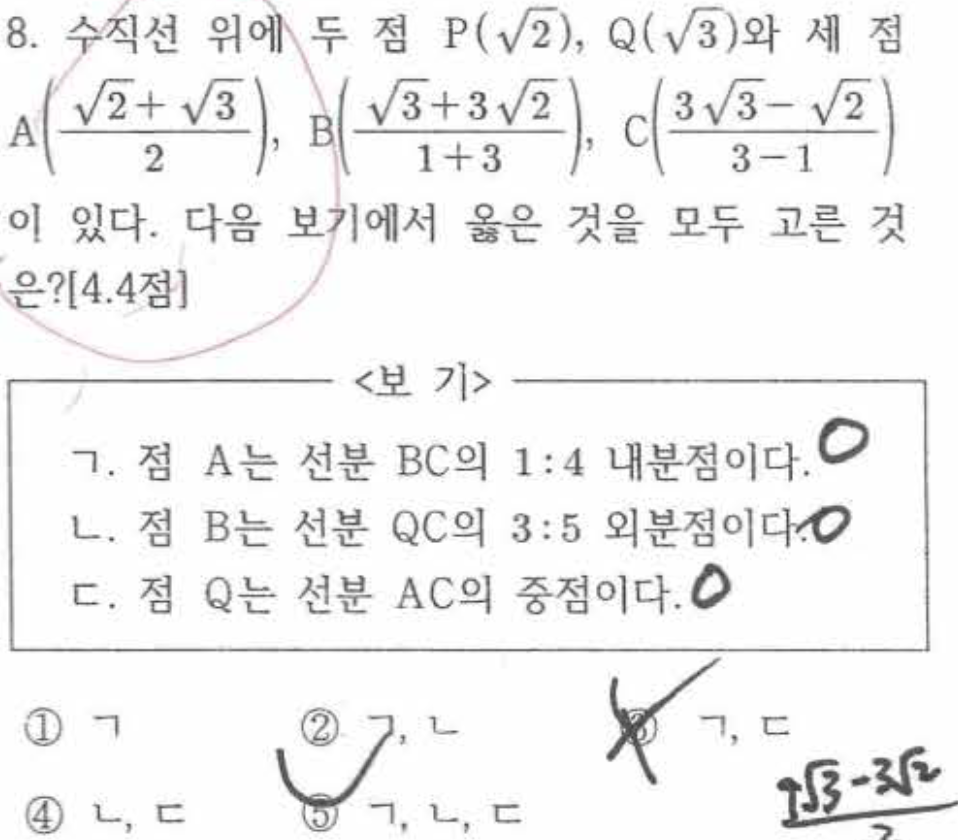 8. 수직선 위에 두 점 P(√2), Q(√3)와 세 점
A((√2+√3)/2), B((√3+3√2)/(1+3)), C((3√3-√2)/(3-1))
이 있다. 다음 보기에서 옳은 것을 모두 고른 것
은?[4.4점]
<보 기>
ㄱ. 점 A는 선분 BC의 1:4 내분점이다. O
ㄴ. 점 B는 선분 QC의 3:5 외분점이다. O
ㄷ. 점 Q는 선분 AC의 중점이다. O
① ㄱ ② ㄱ, ㄴ ③ ㄱ, ㄷ
④ ㄴ, ㄷ ⑤ ㄱ, ㄴ, ㄷ
√3-3√2